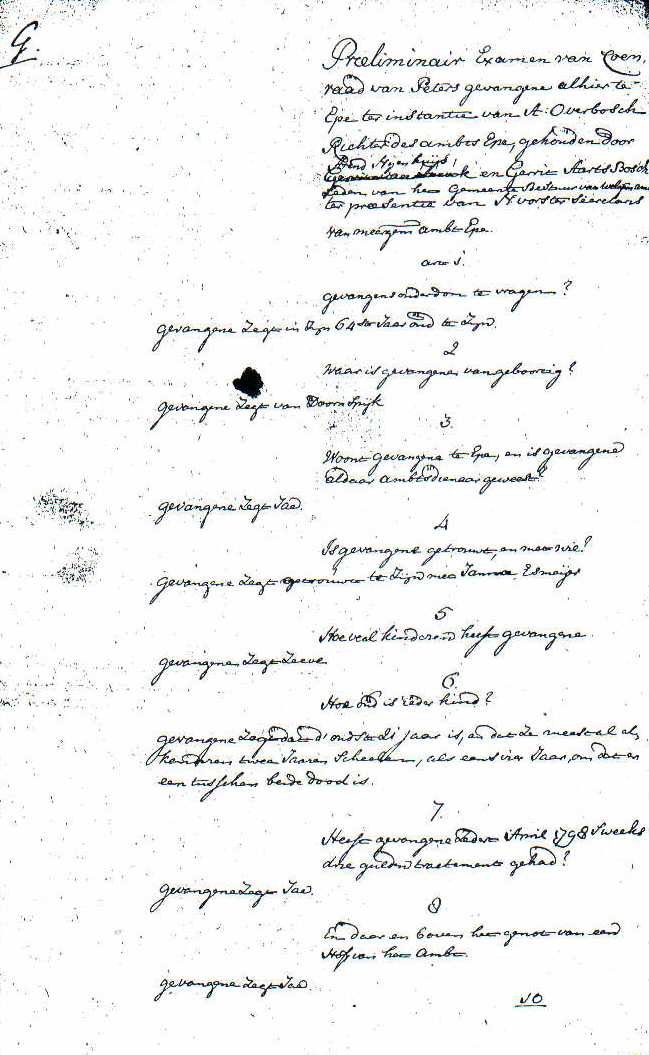 G.
Præliminair Examen van Coen,
raad van Peters gevangene alhier te
Epe ter instantie van A: Overbosch
Richter des ambts Epe, gehouden door
en Gerrit Aarts Bosch
Leden van het Gemeente Bestuur van
ter præsentie van
van meergem ambt Epe.
art 1.
gevangens ouderdom te vragen?
gevangene Zegt in Zijn 64ste Jaar oud te Zijn.
2
Waar is gevangene van geboortig?
gevangene Zegt van Doornspijk
3.
Woont gevangene te Epe, en is gevangene
aldaar ambtsdienaar geweest?
gevangene Zegt Jaa.
4
Is gevangene getrouwt, en met wie?
gevangene Zegt getrouwt te Zijn met Janna Esmeijer
5
Hoeveel kinderen heeft gevangene
gevangene Zegt Zeeve
6.
Hoe oud is ieder kind?
gevangene Zegt dat d' oudste 21 jaar is, en dat Ze meest al als
kinderen twee Jaaren Scheelen, als eens vier Jaar, om dat er
een tusschen beide dood is.
7.
Heeft gevangene Zedert April 1798 's weeks
drie gulden tractement gehad?
gevangene Zegt Jaa.
8
En daar en boven het genot van een
Hof van het Ambt
gevangene Zegt Jaa.
10